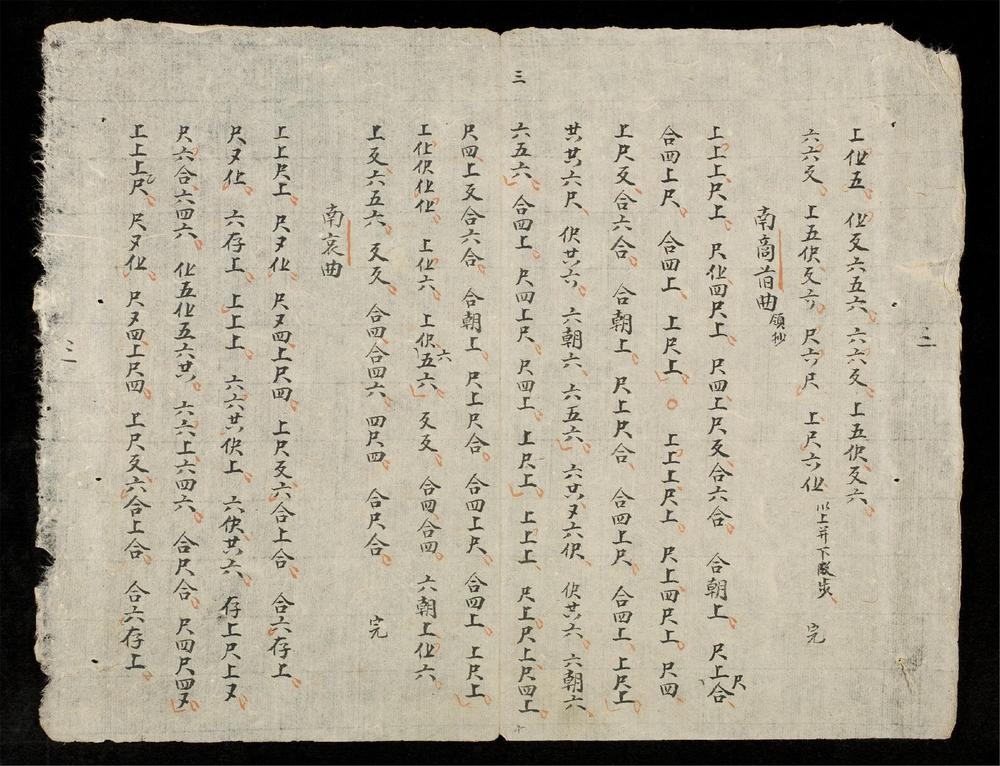 上化五 化叉六五六 六六叉 上五伬叉六
六六叉 上五伬叉六 尺六尺 上尺六化 以上并下段步 完
南商首曲 領抄
上上尺上 尺化四尺上 尺四上尺叉合六合 合朝上 尺上合 尺
合四上尺 合四上 上尺上 上上上尺上 尺上四尺上 尺四
上尺叉合六合 合朝上 尺上尺合 合四上尺 合四上 上尺上
共共六尺 伬共六 六朝六 六五六 六共叉六伬 伬共六 六朝六
三
六五六 合四上 尺四上尺 尺四上 上尺上 上上上 尺上尺上尺四上
尺四上叉合六合 合朝上 尺上尺合 合四上尺 合四上 上尺上
上化伬化化 上化六 上伬五六 六 叉叉 合四合四 六朝上化六
上叉六五六 叉叉 合四合四六 四尺四 合尺合 完
南哀曲
上上尺上 尺叉化 尺叉四上尺四 上尺叉六合上合 合六存上
尺叉化 六存上 上上上 六六共伬上 六伬共六 存上尺上叉
尺六合六四六 化五化五六共 六六上六四六 合尺合 尺四尺四叉
上上上尺 尺叉化 尺叉四上尺四 上尺叉六合上合 合六存上
三